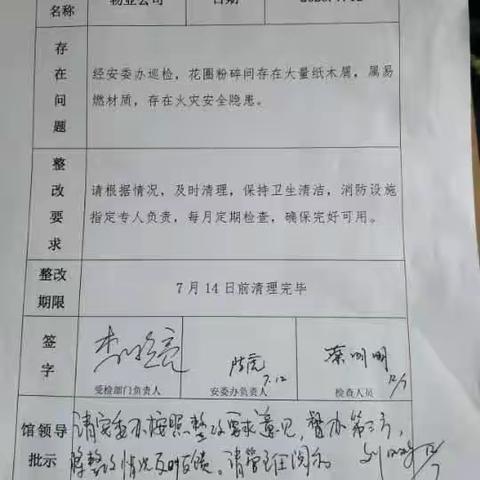 名称 物业公司 日期
存在问题
经安委办巡检，花圈粉碎间存在大量纸木屑，属易
燃材质，存在火灾安全隐患。
整改要求
请根据情况，及时清理，保持卫生清洁，消防设施
指定专人负责，每月定期检查，确保完好可用。
整改期限
7月14日前清理完毕
签字
受检部门负责人 安委办负责人 7.12 检查人员 12/7
馆领导批示
请安委办按照整改要求意见，督办第三方，
将整改情况及时反馈。请管主任阅示